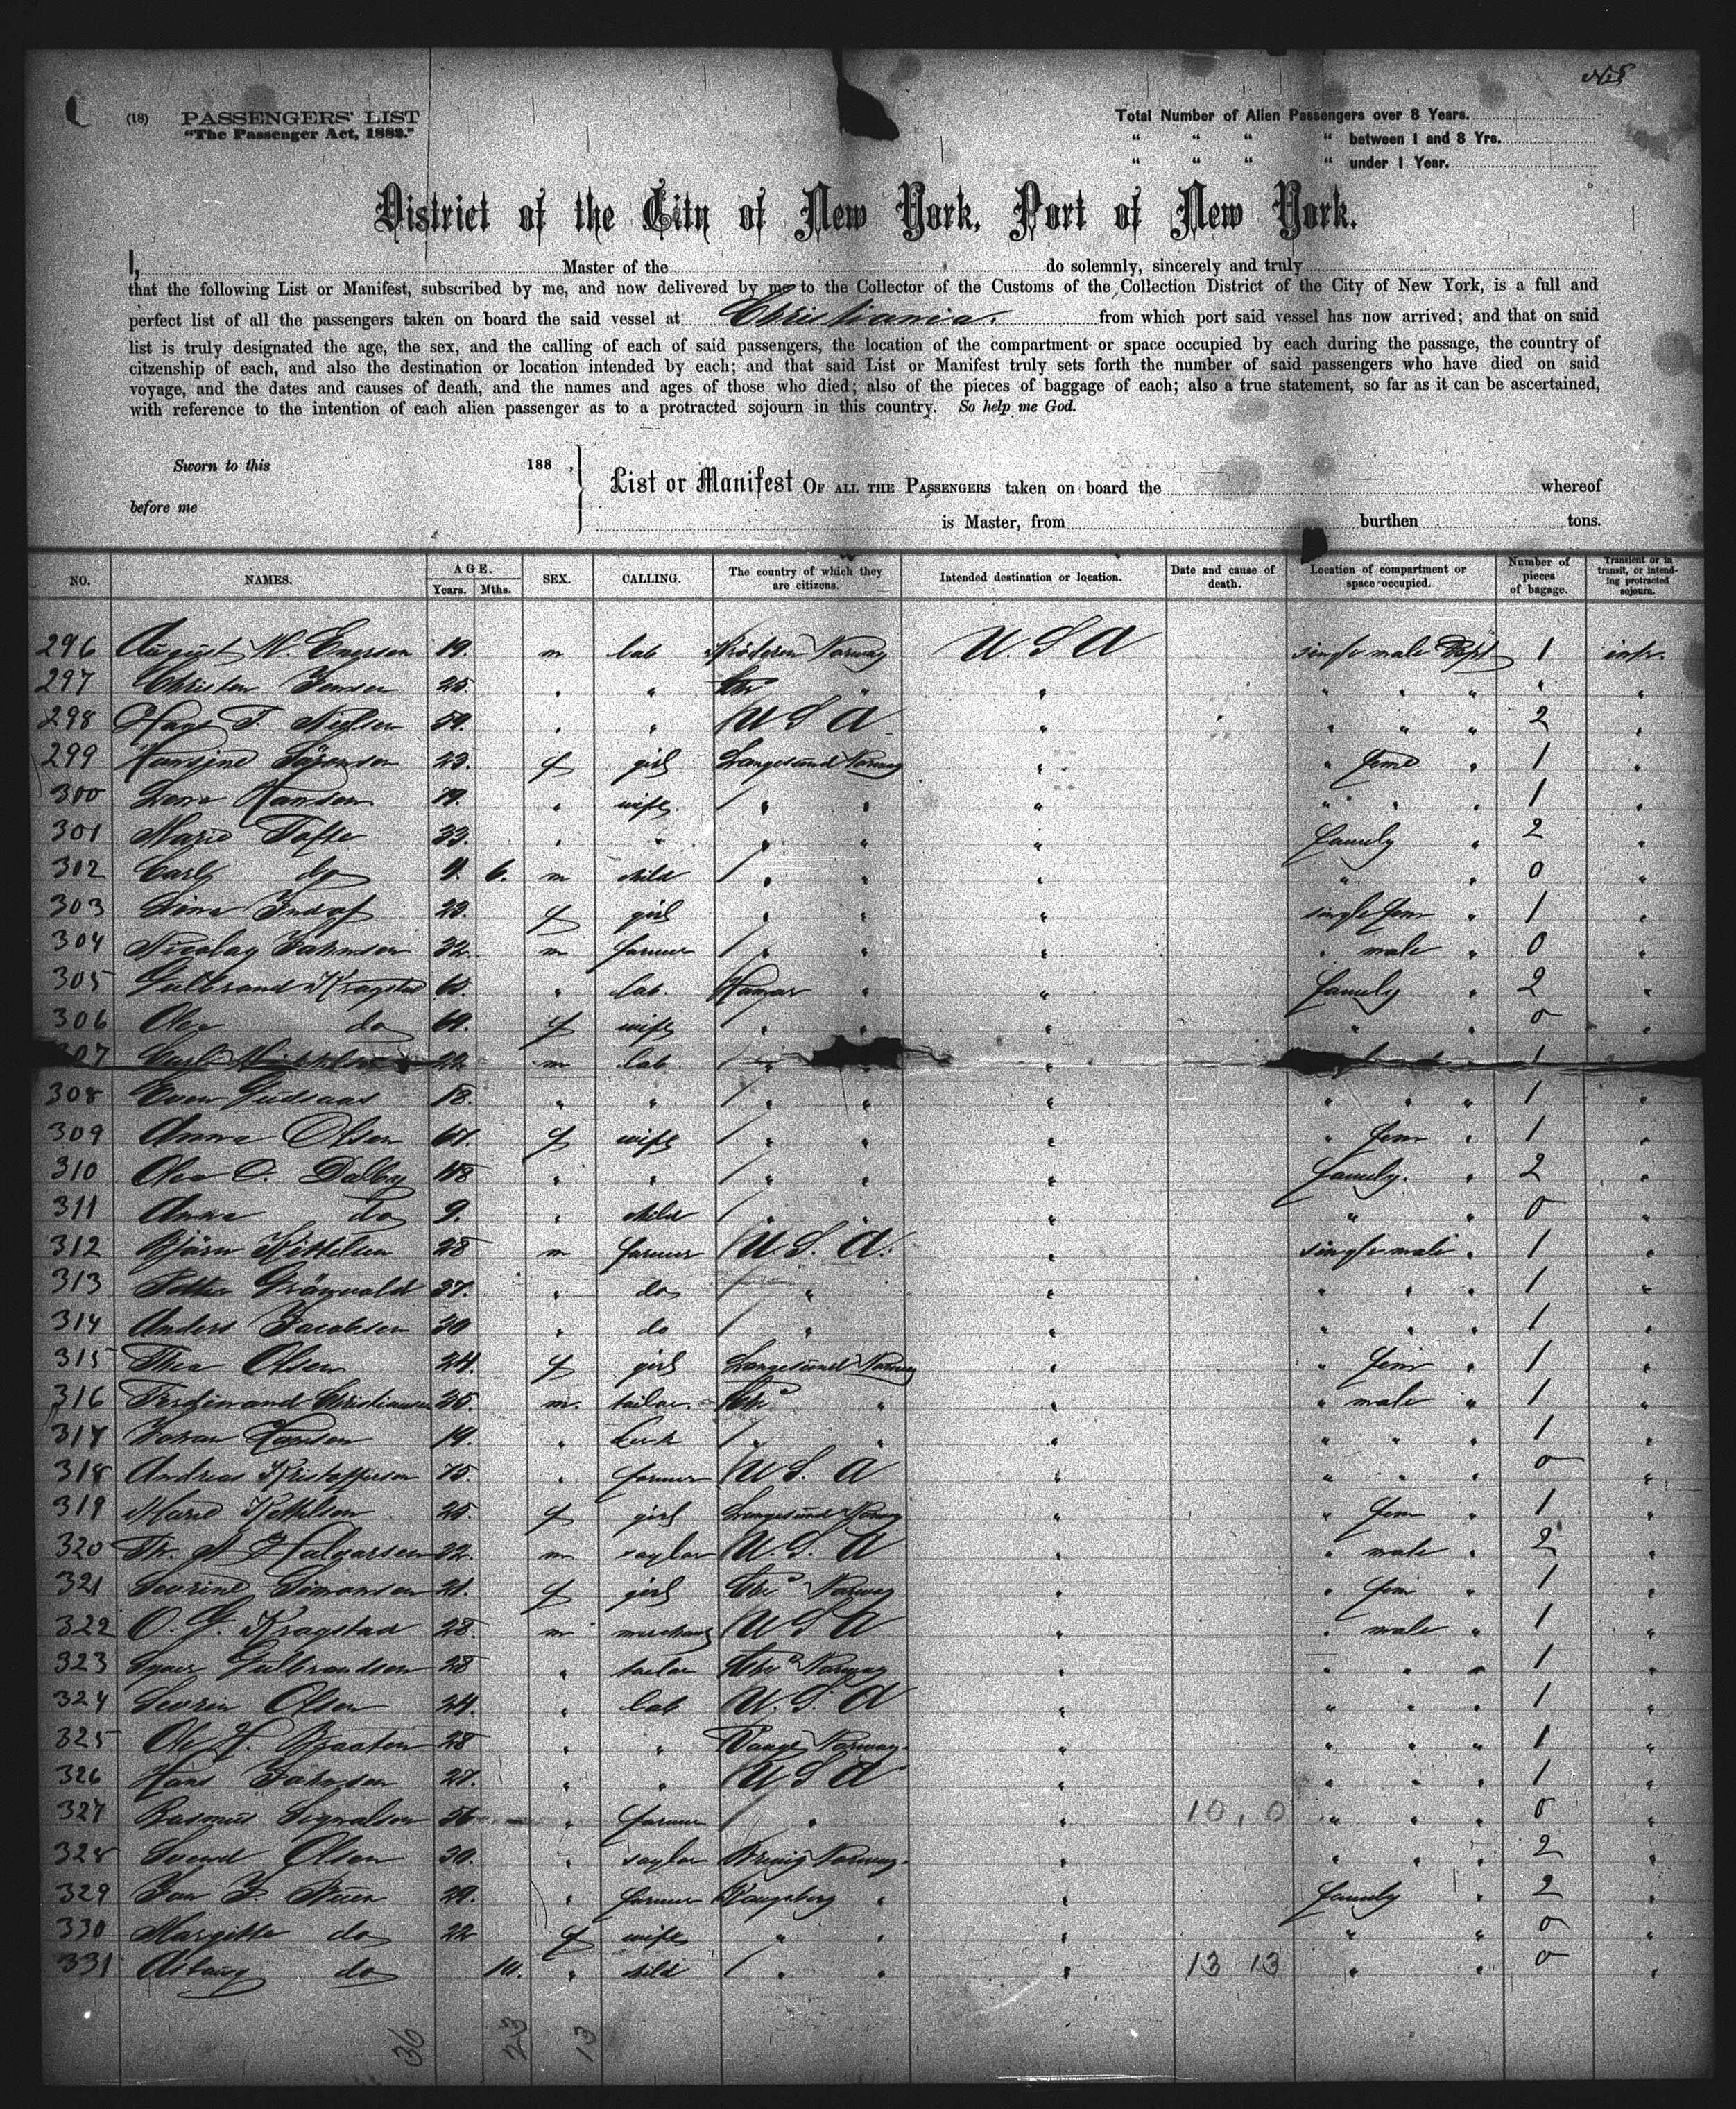 (18) PASSENGERS' LIST
"The Passenger Act, 1882."
Total Number of Alien Passengers over 8 Years.
" " " " between 1 and 8 Yrs.
" " " " under 1 Year.
District of the City of New York, Port of New York.
I, Master of the do solemnly, sincerely and truly
that the following List or Manifest, subscribed by me, and now delivered by me to the Collector of the Customs of the Collection District of the City of New York, is a full and
perfect list of all the passengers taken on board the said vessel at Christiania. from which port said vessel has now arrived; and that on said
list is truly designated the age, the sex, and the calling of each of said passengers, the location of the compartment or space occupied by each during the passage, the country of
citzenship of each, and also the destination or location intended by each; and that said List or Manifest truly sets forth the number of said passengers who have died on said
voyage, and the dates and causes of death, and the names and ages of those who died; also of the pieces of baggage of each; also a true statement, so far as it can be ascertained,
with reference to the intention of each alien passenger as to a protracted sojourn in this country. So help me God.
Sworn to this 188 ,
before me
List or Manifest OF ALL THE PASSENGERS taken on board the whereof
is Master, from burthen tons.
NO. NAMES. AGE. Years. Mths. SEX. CALLING. The country of which they are citizens. Intended destination or location. Date and cause of death. Location of compartment or space occupied. Number of pieces of bagage. Transient or in transit, or intending protracted sojourn.
296 August W. Enersen 19. m lab Norway U.S.A single male 1
297 Christen Jensen 25. " " Chr " " " " " " "
298 Hans T. Nielsen 59. " " U S A " " " " 2 "
299 Hansine Sörensen 23. f girl Langesund Norway " " feme " 1 "
300 Lene Hansen 79. " wife " " " " " " 1 "
301 Marie Tofte 33. " " " " " family " 2 "
302 Carl do 4. 6. m child " " " " " 0 "
303 23. f girl " " " single fem " 1 "
304 Nicolay Johnsen 32. m farmer " " " " male " 0 "
305 Gulbrand Kragstad 65. " lab. Hamar " " family " 2 "
306 Olea do 69. f wife " " " " " 0 "
307 Carl 22 m lab " " " 1
308 Even Gudsaas 18. " " " " " " " " 1 "
309 Anna Olsen 67. f wife " " " " fem " 1 "
310 Olea O. Dalby 48 " " " " " family. " 2 "
311 Anna do 9. " child " " " " " 0 "
312 Björn Kittelsen 28 m farmer U.S.A. " single male " 1 "
313 Petter Grönvold 37. " do " " " " " 1 "
314 Anders Jacobsen 30 " do " " " " " 1 "
315 Thea Olsen 24. f girl Langesund Norway " " fem " 1 "
316 Ferdinand Christiansen 35. m. tailor Chr " " " male " 1 "
317 Johan Hansen 19. " " " " " " " 1 "
318 Andreas Kristoffersen 75. " farmer U S. A " " " " 0 "
319 Marie Kettilsen 25. f girl Langesund Norway " " fem " 1 "
320 Th. A Halvorsen 22. m saylor U.S. A " " male " 2 "
321 Severine Simonsen 21. f girl Chr Norway " " fem " 1 "
322 O. G. Kragstad 28. m merchant U S A " " male " 1 "
323 Gulbrandsen 28 " tailor Chr Norway " " " " 1 "
324 Severin Olsen 24. " lab U.S.A " " " " 1 "
325 Ole H. Braaten 28 " " Vaage Norway. " " " " 1 "
326 Hans Johnsen 27. " " U S A " " " " 1 "
327 Rasmus Sigvalsen 56 " farmer " " 10, 0 " " " 0 "
328 Svend Olsen 30. " saylor Brevig Norway. " " " " 2 "
329 Jon J. 29. " farmer Kongsberg " " family " 2 "
330 Margitte do 22 f wife " " " " " 0 "
331 do 10. " child " " " 13 13 " " 0 "
36 23 13